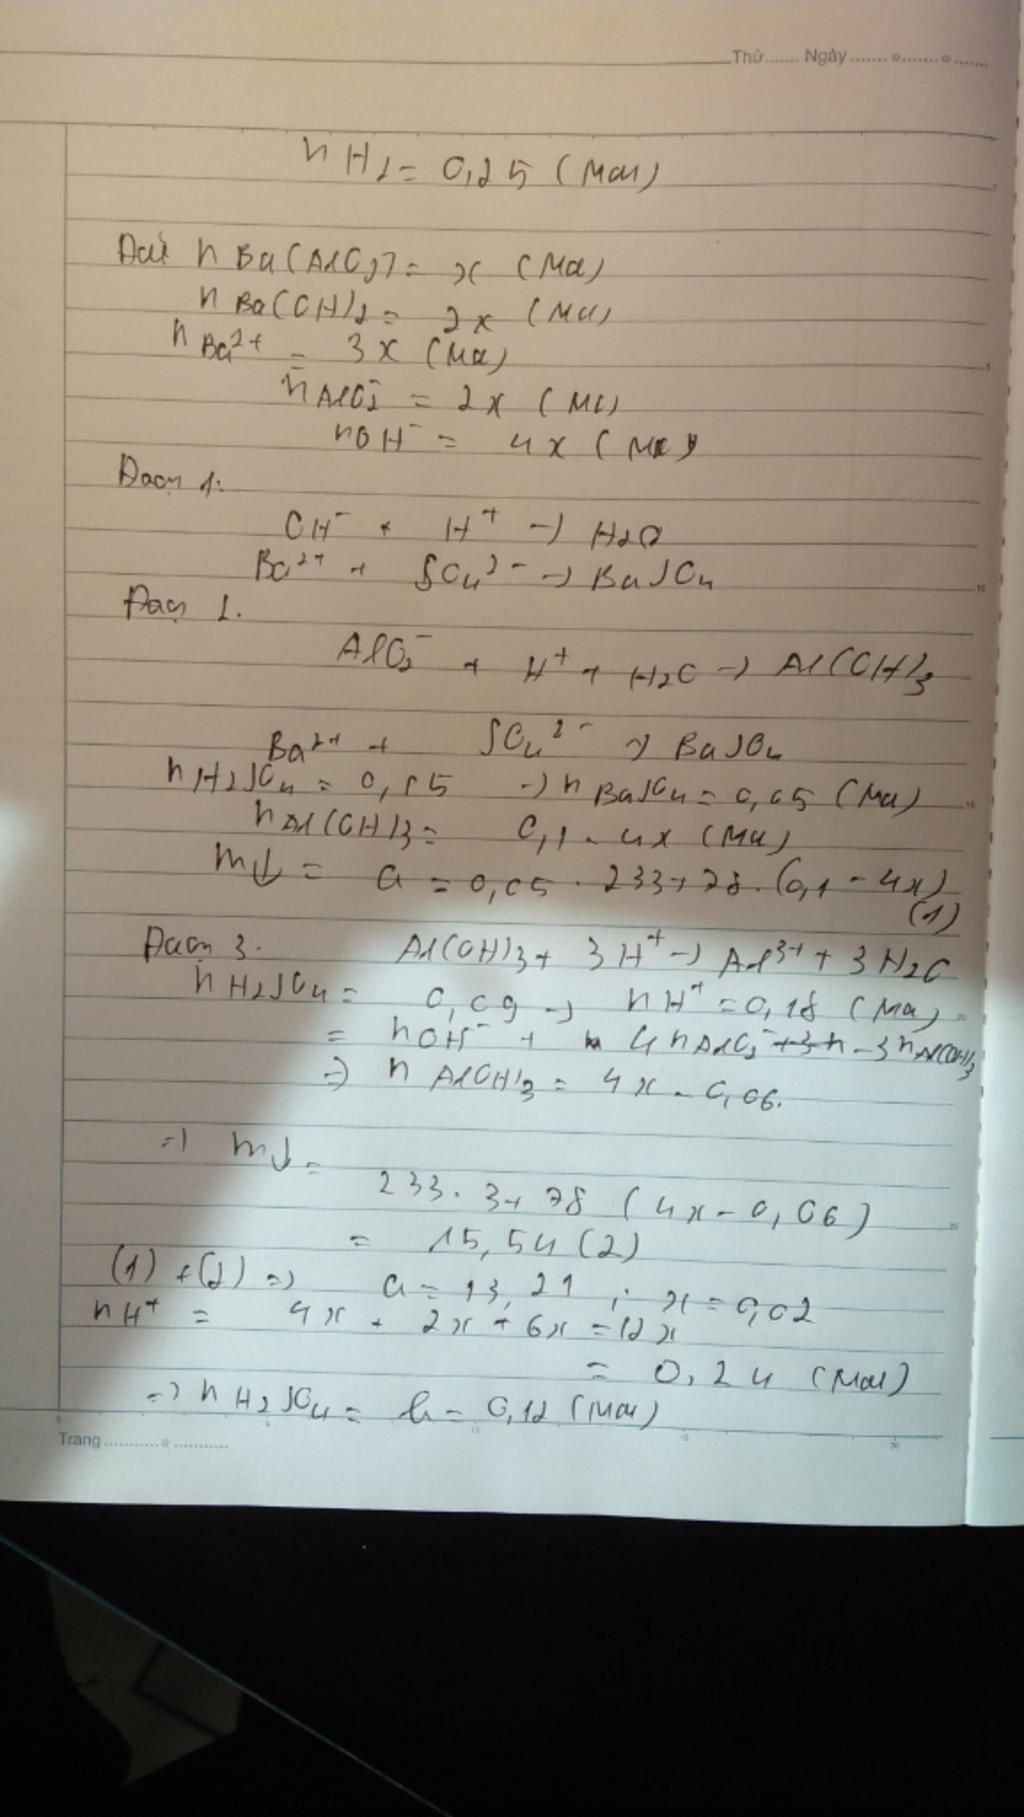 Thứ....... Ngày
nH2 = 0,25 (Mol)
Đặt nBa(AlO2)2 = x (Mol)
nBa(OH)2 = 2x (Mol)
nBa2+ = 3x (Mol)
nAlO2- = 2x (Mol)
nOH- = 4x (Mol)
Đoạn 1:
OH- + H+ → H2O
Ba2+ + SO42- → BaSO4
Đoạn 2.
AlO2- + H+ + H2O → Al(OH)3
Ba2+ + SO42- → BaSO4
nH2SO4 = 0,05 → nBaSO4 = 0,05 (Mol)
nAl(OH)3 = 0,1 - 4x (Mol)
m↓ = a = 0,05 . 233 + 78 . (0,1 - 4x)
(1)
Đoạn 3. Al(OH)3 + 3H+ → Al3+ + 3H2O
nH2SO4 = 0,09 → nH+ = 0,18 (Mol)
= nOH- + 4nAlO2- - 3nAl(OH)3
=> nAl(OH)3 = 4x - 0,06.
=> m↓ =
233. 3+ 78 (4x - 0,06)
= 15,54 (2)
(1) + (2) => a = 13,21 ; x = 0,02
nH+ = 4x + 2x + 6x = 12x
= 0,24 (Mol)
=> nH2SO4 = b = 0,12 (Mol)
Trang